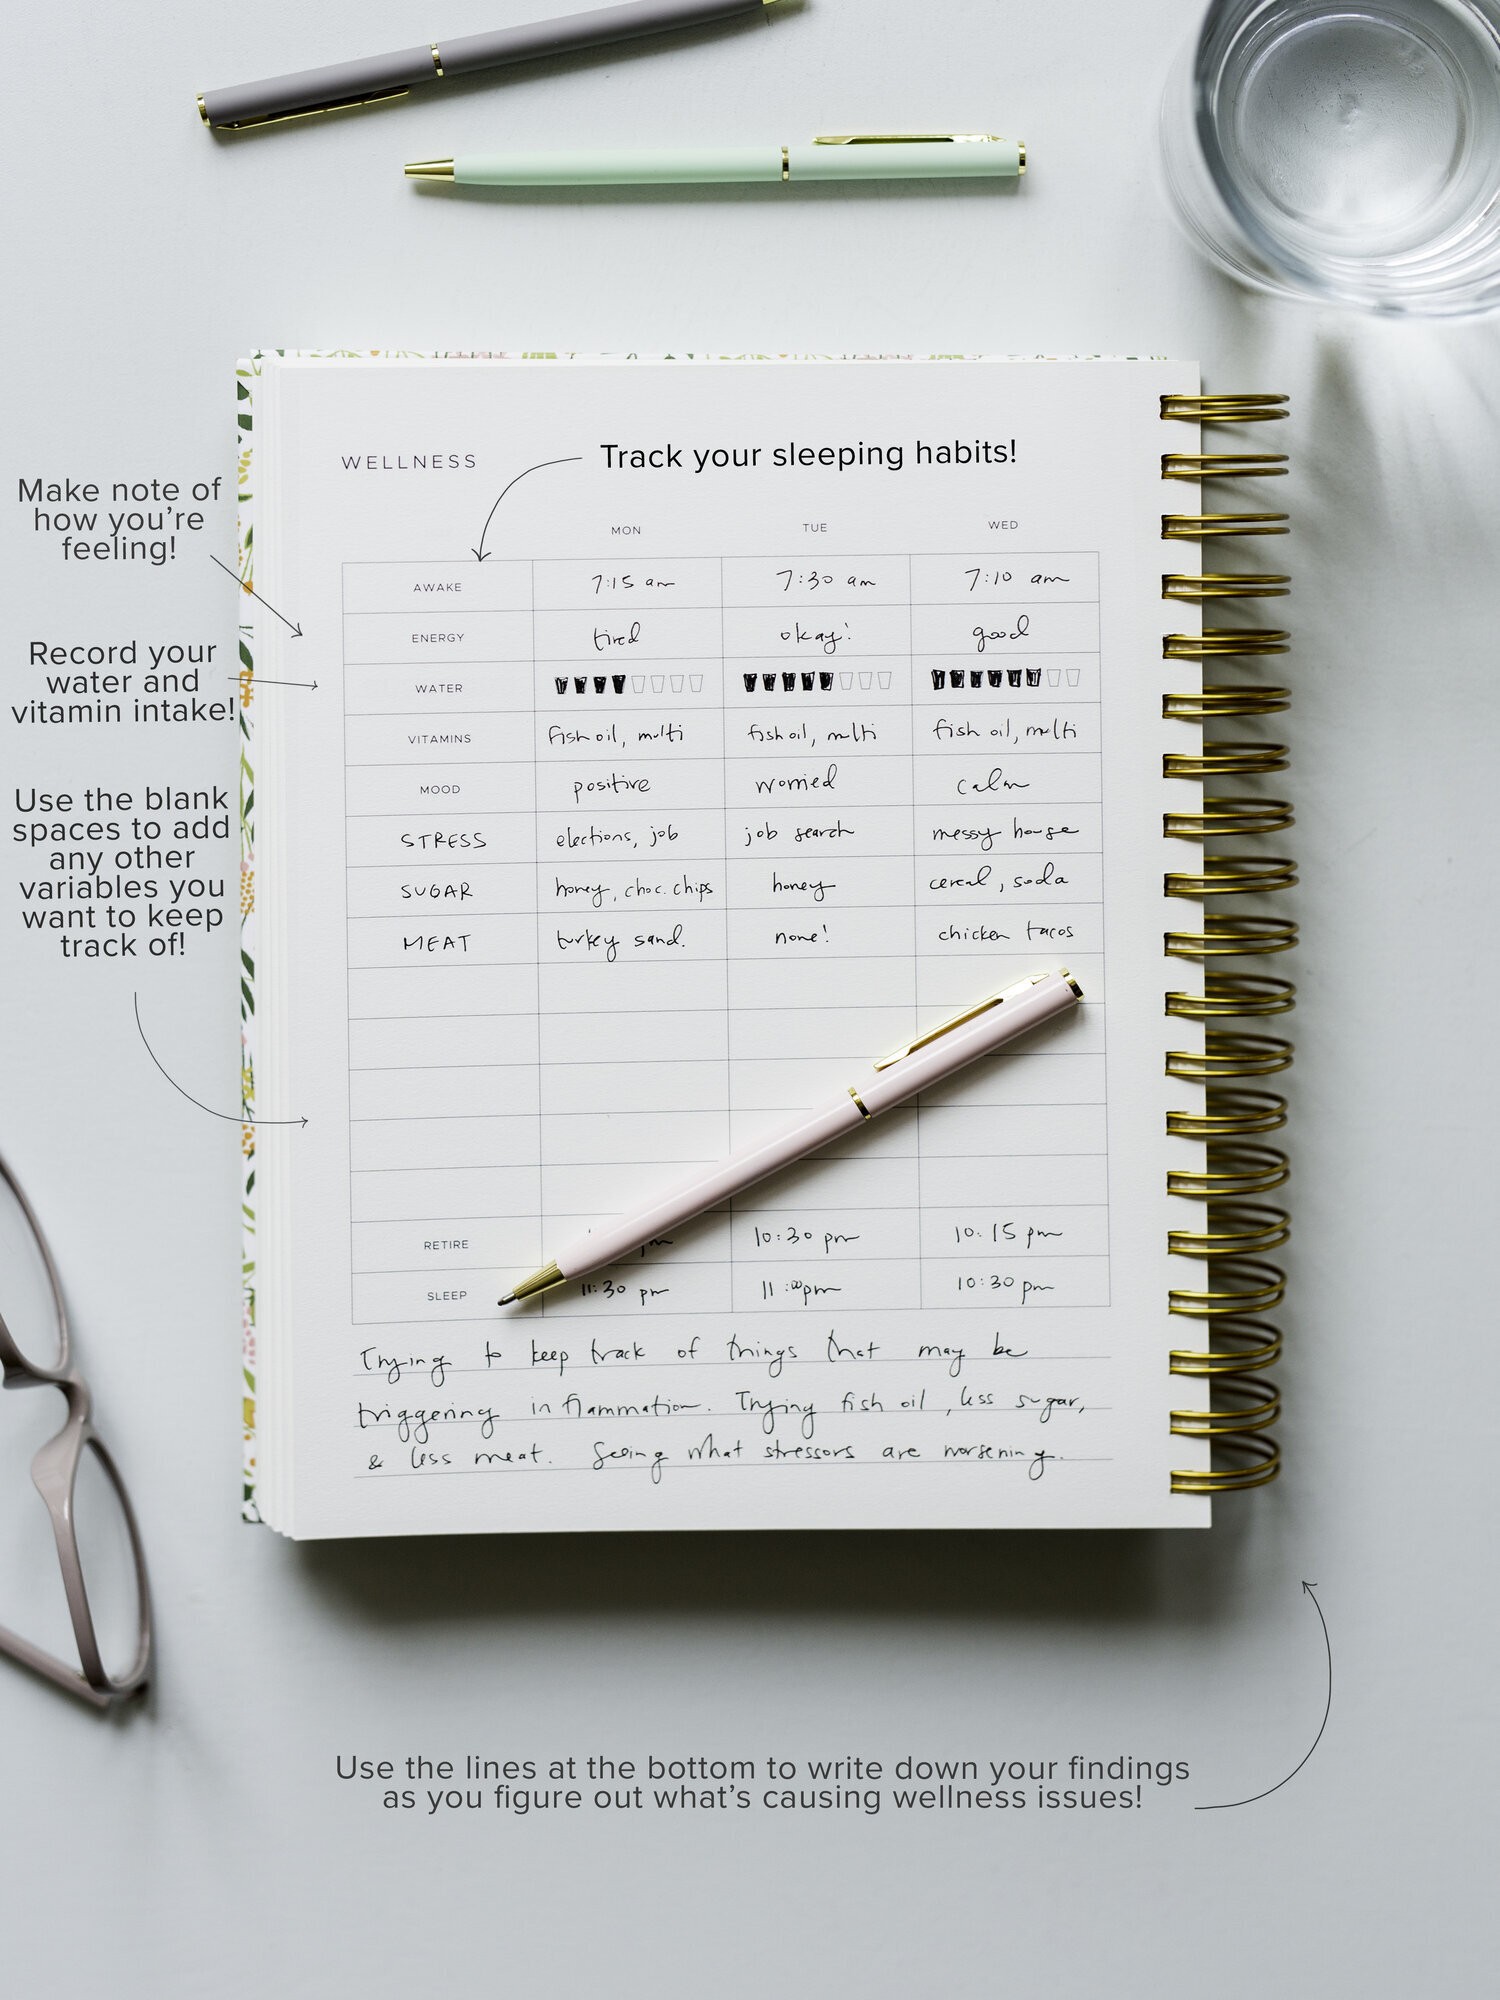 WELLNESS
Track your sleeping habits!
Make note of
how you're
feeling!
Record your
water and
vitamin intake!
Use the blank
spaces to add
any other
variables you
want to keep
track of!
MON TUE WED
AWAKE 7:15 am 7:30 am 7:10 am
ENERGY tired okay! good
WATER
VITAMINS fish oil, multi fish oil, multi fish oil, multi
MOOD positive worried calm
STRESS elections, job job search messy house
SUGAR honey, choc. chips honey cereal, soda
MEAT turkey sand. none! chicken tacos
RETIRE 10:30 pm 10:15 pm
SLEEP 11:30 pm 11:00pm 10:30 pm
Trying to keep track of things that may be
triggering inflammation. Trying fish oil, less sugar,
& less meat. Seeing what stressors are worsening.
Use the lines at the bottom to write down your findings
as you figure out what's causing wellness issues!